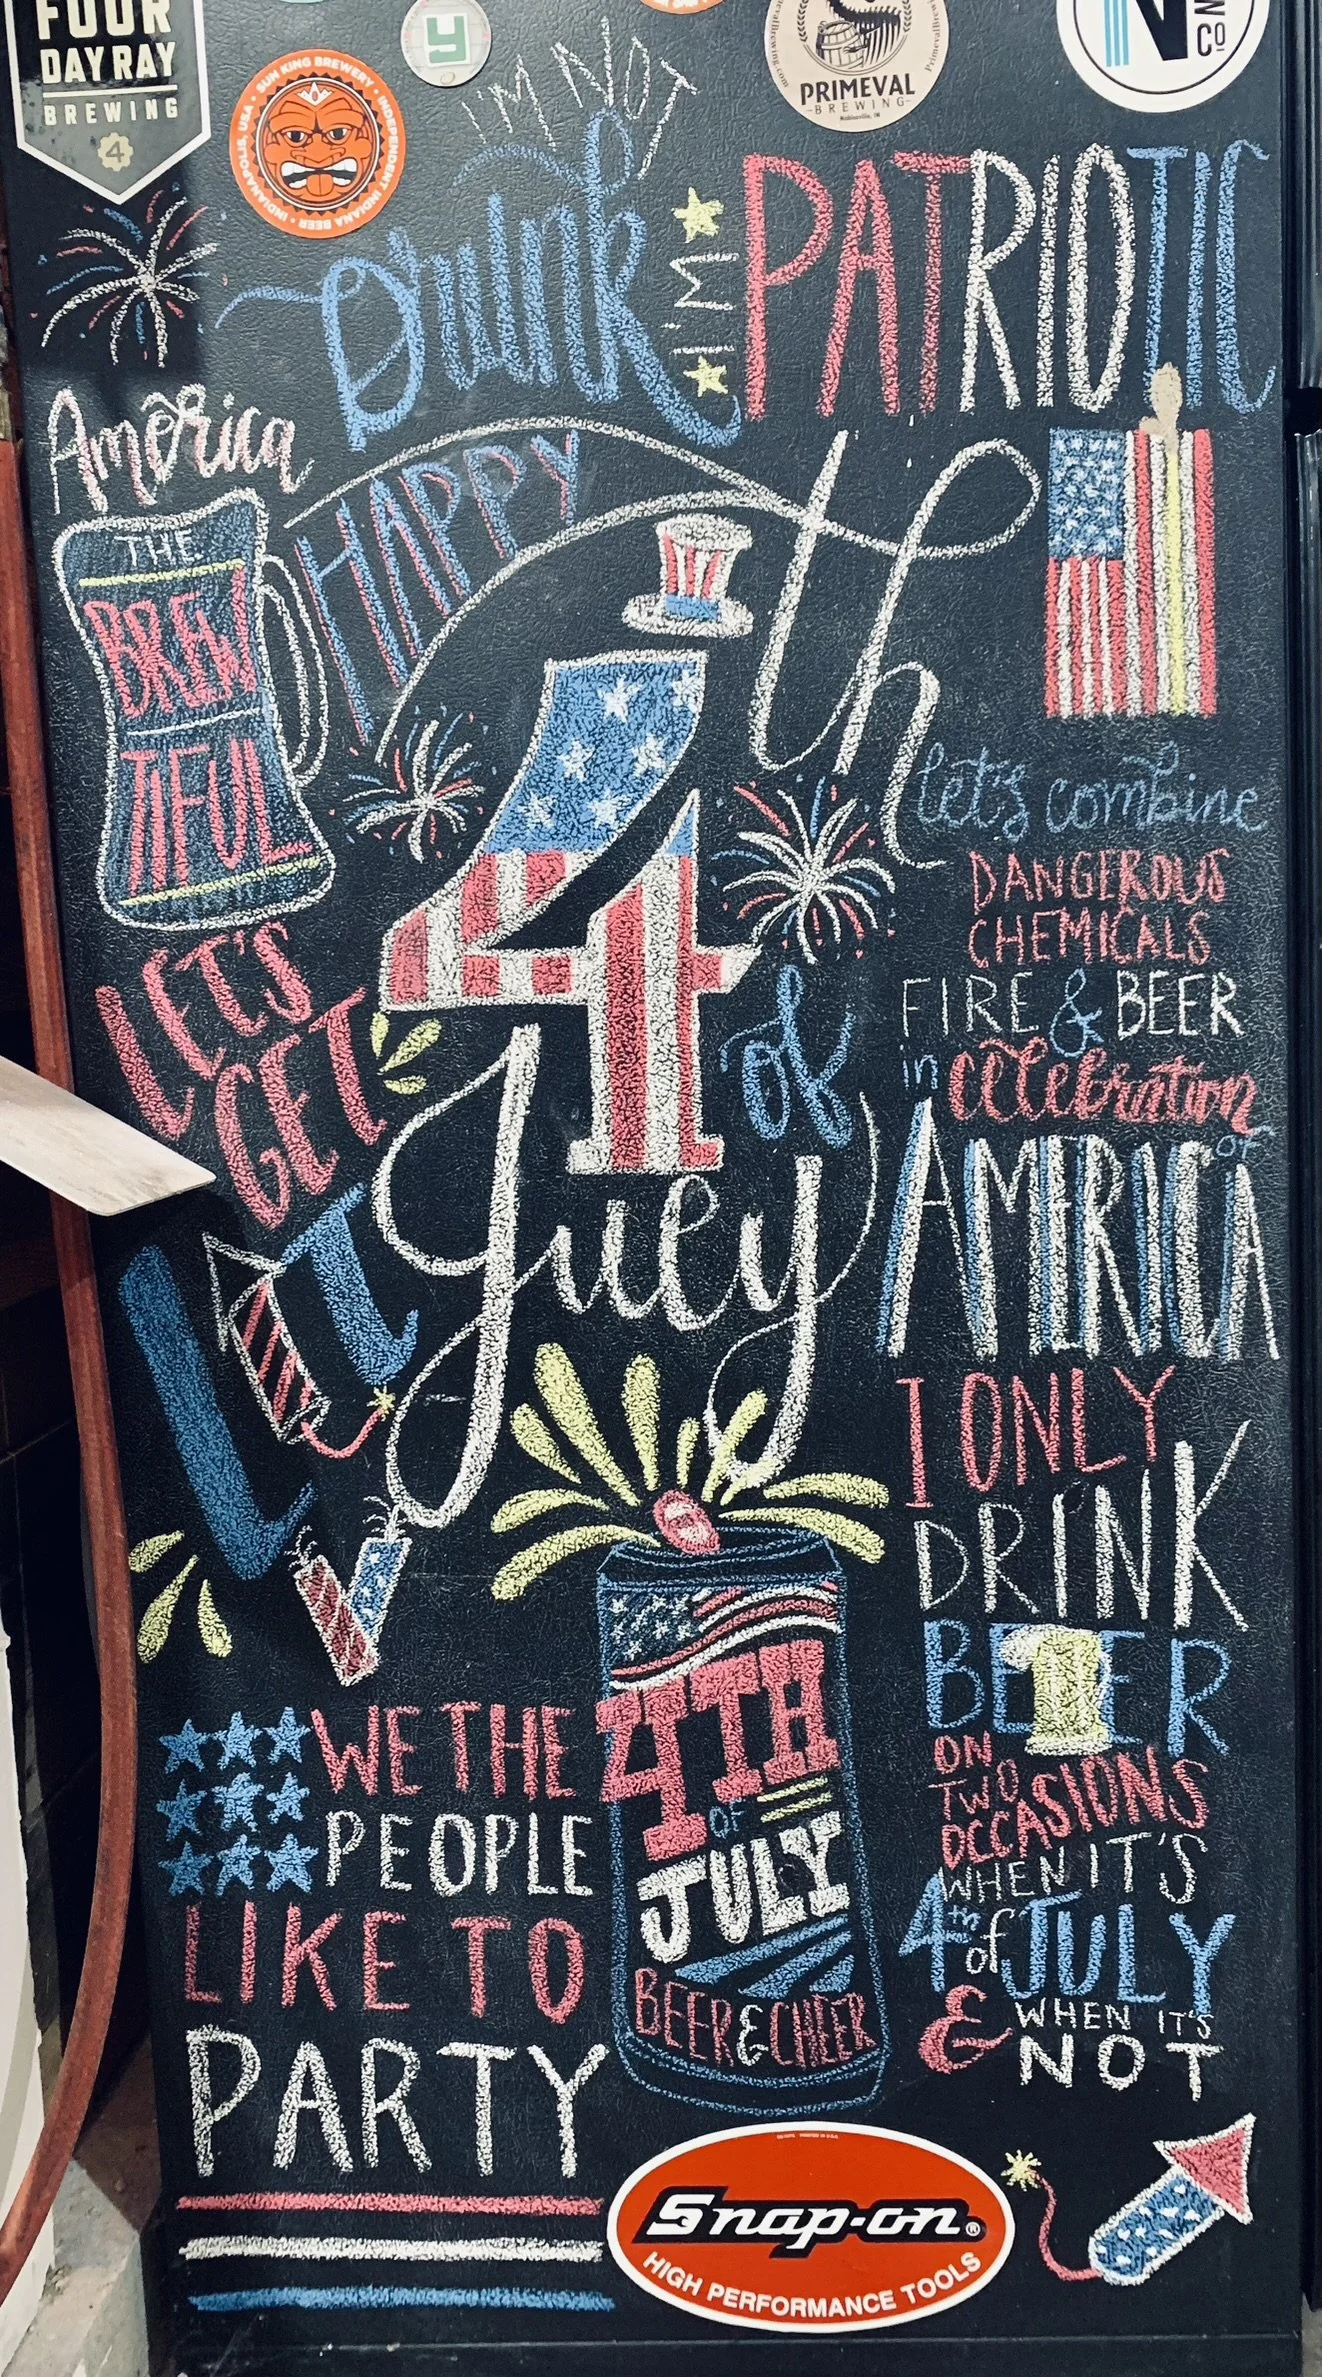 FOUR
DAY RAY
BREWING
4
SUN KING BREWERY • INDEPENDENT INDIANA BEER • INDIANAPOLIS, USA •
y
PRIMEVAL
BREWING
Noblesville, IN
N
CO
I'M NOT
Drunk
I'M
PATRIOTIC
America
THE
BREW
TIFUL
HAPPY
4th
of
July
let's combine
DANGEROUS
CHEMICALS
FIRE & BEER
in celebration
of
AMERICA
LET'S
GET
LIT
I ONLY
DRINK
BEER
ON
TWO
OCCASIONS
WHEN IT'S
4th of JULY
& WHEN IT'S
NOT
WE THE
PEOPLE
LIKE TO
PARTY
4TH
OF
JULY
BEER & CHEER
Snap-on®
HIGH PERFORMANCE TOOLS